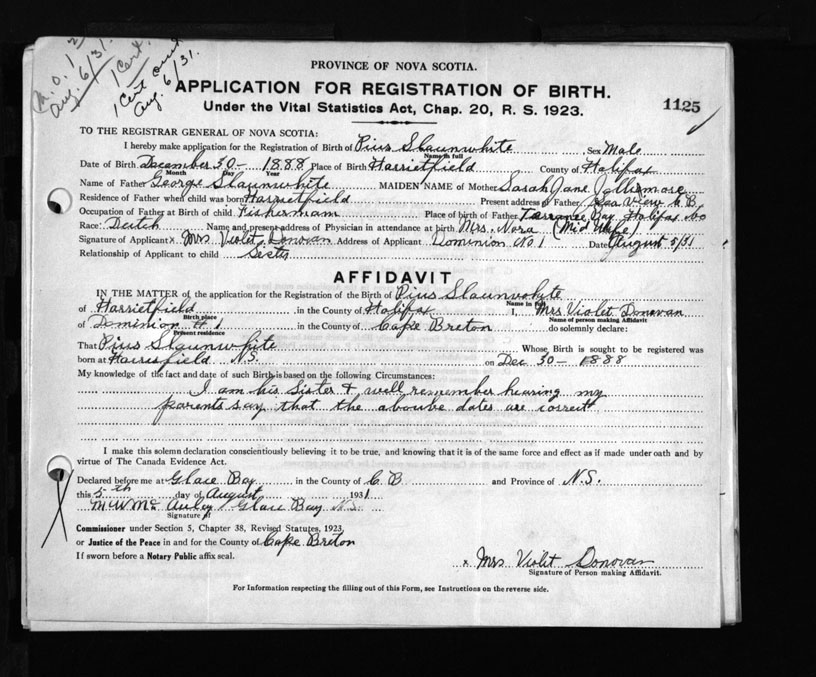 M.O. 1
Aug. 6/31.
1 Cert.
1 Cert out
Aug. 6/31.
PROVINCE OF NOVA SCOTIA.
APPLICATION FOR REGISTRATION OF BIRTH.
Under the Vital Statistics Act, Chap. 20, R. S. 1923.
1125
TO THE REGISTRAR GENERAL OF NOVA SCOTIA:
I hereby make application for the Registration of Birth of Pius Slaunwhite Sex Male
Name in full
Date of Birth December 30 - 1888 Place of Birth Harrietfield County of Halifax
Month Day Year
Name of Father George Slaunwhite MAIDEN NAME of Mother Sarah Jane
Residence of Father when child was born Harrietfield Present address of Father, Sea View C.B.
Occupation of Father at Birth of child Fisherman Place of birth of Father Terrance Bay, Halifax Co
Race: Dutch Name and present address of Physician in attendance at birth Mrs. Nora (Mid Wife)
Signature of Applicant x Mrs Violet Donovan Address of Applicant Dominion No. 1 Date August 5/31
Relationship of Applicant to child Sister
AFFIDAVIT
IN THE MATTER of the application for the Registration of the Birth of Pius Slaunwhite
Name in full
of Harrietfield in the County of Halifax I, Mrs Violet Donovan
Birth place Name of Person making Affidavit
of Dominion # 1 in the County of Cape Breton do solemnly declare:
Present residence
That Pius Slaunwhite Whose Birth is sought to be registered was
born at Harriesfield N.S. on Dec 30 - 1888
My knowledge of the fact and date of such Birth is based on the following Circumstances:
I am his Sister & well remember hearing my
parents say that the aboube dates are correct
I make this solemn declaration conscientiously believing it to be true, and knowing that it is of the same force and effect as if made under oath and by
virtue of The Canada Evidence Act.
Declared before me at Glace Bay in the County of C B and Province of N.S.
this 5th day of August 1931
M W McAuley Glace Bay N.S.
Signature of
Commissioner under Section 5, Chapter 38, Revised Statutes, 1923,
or Justice of the Peace in and for the County of Cape Breton
If sworn before a Notary Public affix seal.
x Mrs Violet Donovan
Signature of Person making Affidavit.
For Information respecting the filling out of this Form, see Instructions on the reverse side.